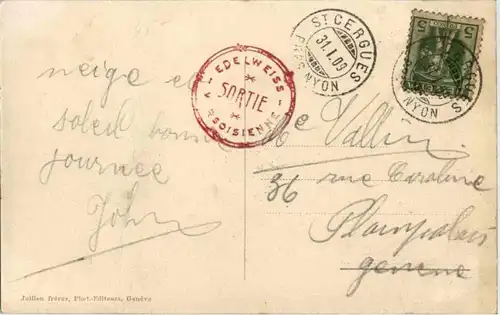 neige et
soleil bonne
journee
John
EDELWEISS
SORTIE
ST CERGUES
31.I.09
PRÈS NYON
5 5
CERGUES
NYON
Vallin
36 rue Caroline
Plainpalais
geneve
Jullien frères, Phot.-Editeurs, Genève